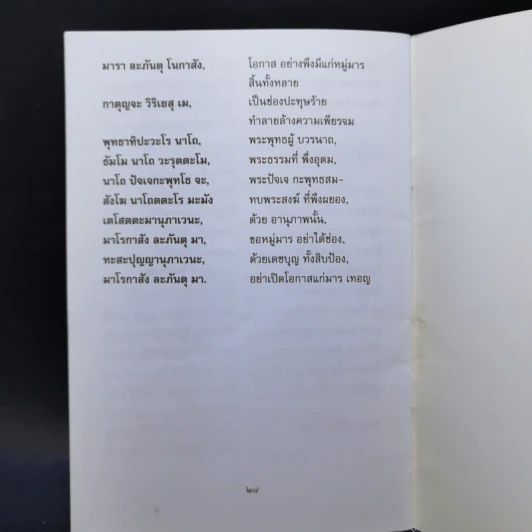 มารา ละภันตุ โนกาสัง, โอกาส อย่างพึงมีแก่หมู่มาร
สิ้นทั้งหลาย
กาตุญจะ วิริเยสุ เม, เป็นช่องปะทุษร้าย
ทำลายล้างความเพียรจม
พุทธาทิปะวะโร นาโถ, พระพุทธผู้ บวรนาถ,
ธัมโม นาโถ วะรุตตะโม, พระธรรมที่ พึ่งอุดม,
นาโถ ปัจเจกะพุทโธ จะ, พระปัจเจ กะพุทธสม–
สังโฆ นาโถตตะโร มะมัง ทบพระสงฆ์ ที่พึ่งผยอง,
เตโสตตะมานุภาเวนะ, ด้วย อานุภาพนั้น,
มาโรกาสัง ละภันตุ มา, ขอหมู่มาร อย่าได้ช่อง,
ทะสะปุญญานุภาเวนะ, ด้วยเดชบุญ ทั้งสิบป้อง,
มาโรกาสัง ละภันตุ มา. อย่าเปิดโอกาสแก่มาร เทอญ
๒๘